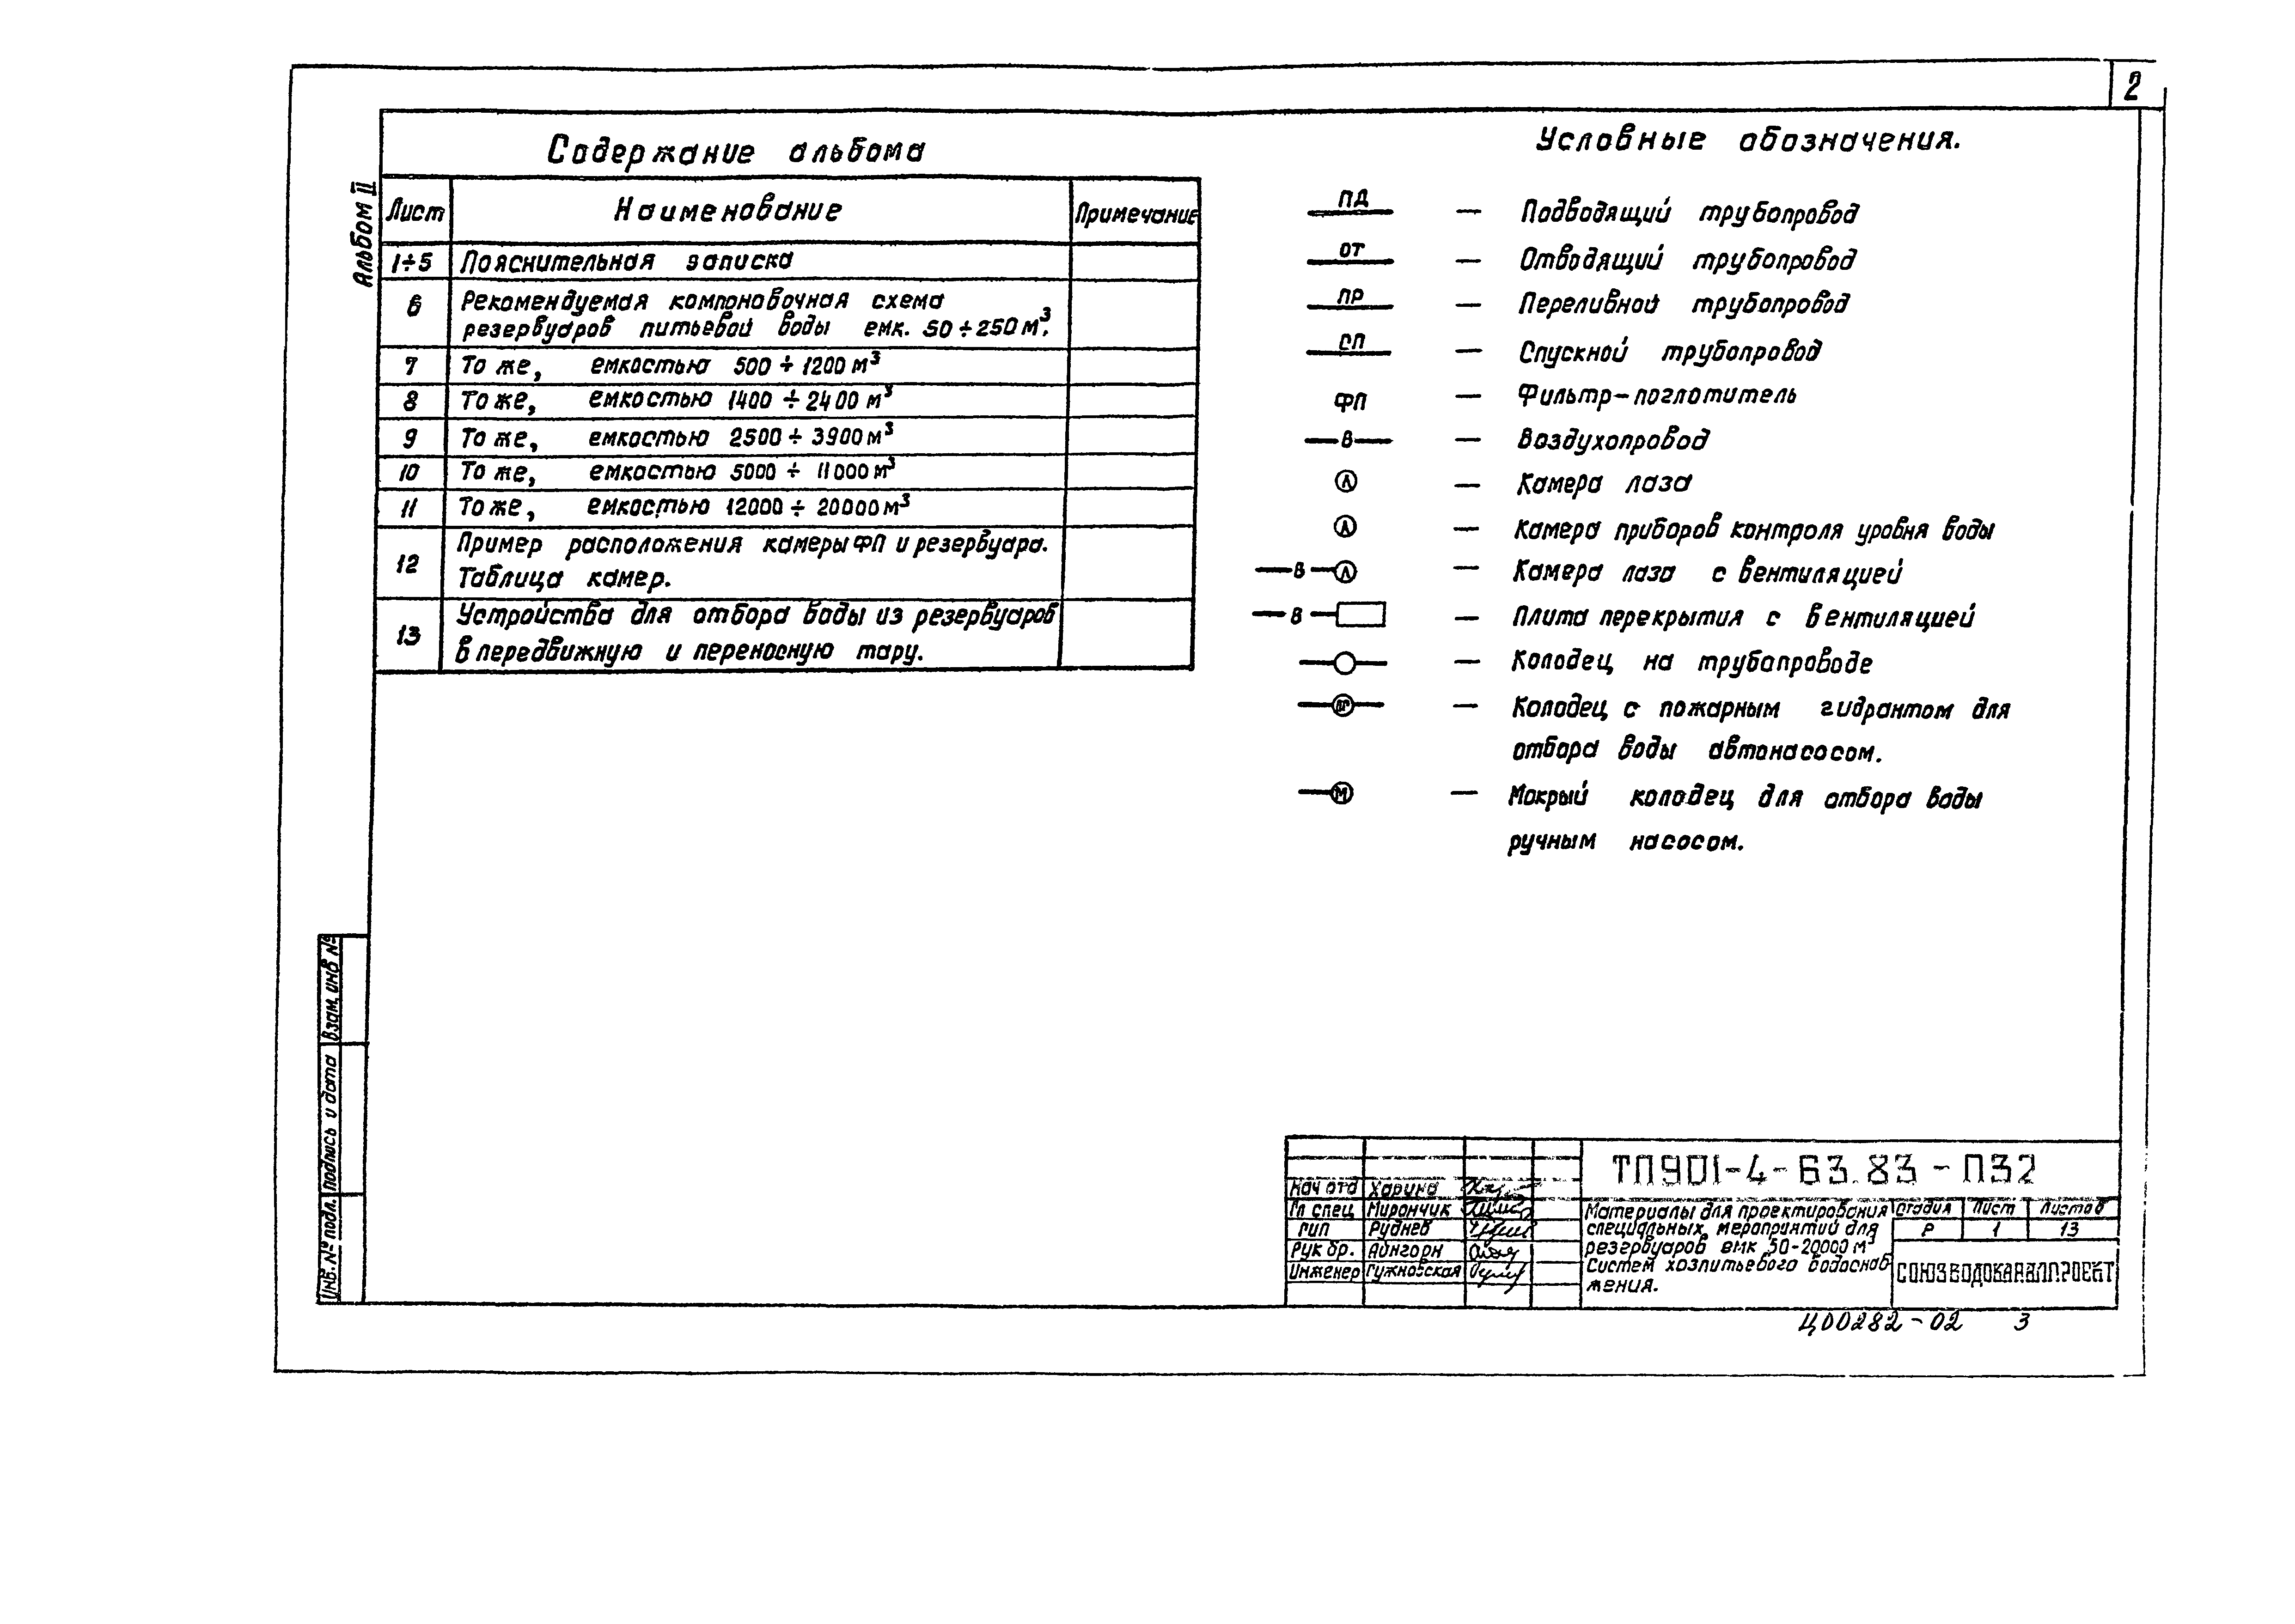 2
Альбом II
Содержание альбома
Лист Наименование Примечание
1÷5 Пояснительная записка
6 Рекомендуемая компоновочная схема
резервуаров питьевой воды емк. 50÷250 м³.
7 То же, емкостью 500÷1200 м³
8 То же, емкостью 1400÷2400 м³
9 То же, емкостью 2500÷3900 м³
10 То же, емкостью 5000÷11000 м³
11 То же, емкостью 12000÷20000 м³
12 Пример расположения камеры ФП и резервуара.
Таблица камер.
13 Устройства для отбора воды из резервуаров
в передвижную и переносную тару.
Условные обозначения.
ПД — Подводящий трубопровод
ОТ — Отводящий трубопровод
ПР — Переливной трубопровод
СП — Спускной трубопровод
ФП — Фильтр-поглотитель
В — Воздухопровод
Л — Камера лаза
Д — Камера приборов контроля уровня воды
В Л — Камера лаза с вентиляцией
В — Плита перекрытия с вентиляцией
— Колодец на трубопроводе
ПГ — Колодец с пожарным гидрантом для
отбора воды автонасосом.
М — Мокрый колодец для отбора воды
ручным насосом.
Взам. инв №
Подпись и дата
Инв. № подл.
ТП901-4-63.83-ПЗ2
Нач отд Харина
Гл спец Мирончик
ГИП Руднев
Рук бр. Айнгорн
Инженер Гужновская
Материалы для проектирования
специальных мероприятий для
резервуаров емк 50-20000 м³
Систем хозпитьевого водоснаб
жения.
Стадия Лист Листов
Р 1 13
СОЮЗВОДОКАНАЛПРОЕКТ
Ц00282-02 3